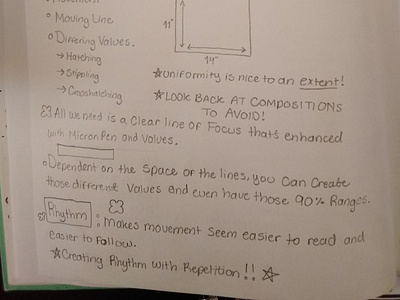 Movement
Moving Line
Differing Values.
→ Hatching
→ Stippling
→ Crosshatching
11"
14"
☆Uniformity is nice to an extent!
☆LOOK BACK AT COMPOSITIONS
TO AVOID!
All we need is a Clear line of Focus that's enhanced
with Micron Pen and Values.
Dependent on the Space of the lines, you Can Create
those different Values and even have those 90% Ranges.
Rhythm
Makes movement seem easier to read and
easier to follow.
☆Creating Rhythm with Repetition!! ☆